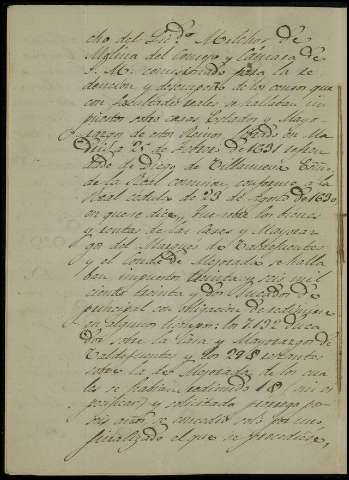 cho del Lic.do Melchor de
Molina del Consejo y Cámara de
S. M. comisionado para la re
dencion y desempeño de los censos que
con facultades reales se hallaban im
puestos sobre casas Estados y Mayo-
razgos de estos Reinos librado en Ma
drid a 25 de Febrero de 1631 refren
dado de Diego de Villanueva Escno.
de la Real comision, conforme a la
Real cedula de 23 de Agosto de 1630
en que se dice, que sobre los bienes
y rentas de las Casas y Mayoraz-
gos del Marques de Valdefuentes
y el conde de Mejorada se halla
ban impuestos treinta y seis mil
ciento treinta y dos Ducados de
principal con obligacion de redimirse
en algunos tiempos: los 7132 duca
dos sobre la Casa y Mayorazgo de
Valdefuentes y los 29 restantes
sobre la de Mejorada de los cua
les se habian redimido 18 (sin es
pecificar) y solicitada proroga por
seis años se concedió solo por uno,
finalizado el que se procediese,